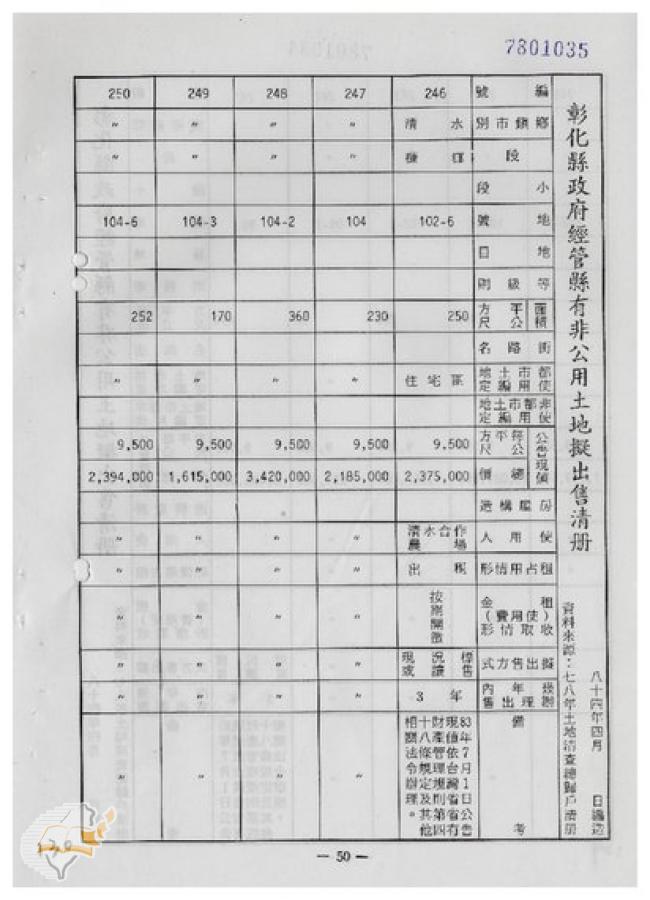 7801035
彰化縣政府經管縣有非公用土地擬出售清册
八十四年四月 日編造
資料來源：七八年土地清查總歸戶清册
編號 246 247 248 249 250
鄉鎮市別 清水 〃 〃 〃 〃
段 〃 〃 〃 〃
小段
地號 102-6 104 104-2 104-3 104-6
地目
等級則
面積 平方公尺 250 230 360 170 252
街路名
都市土地使用編定 住宅區 〃 〃 〃 〃
非都市土地使用編定
公告現值 每平方公尺 9,500 9,500 9,500 9,500 9,500
總價 2,375,000 2,185,000 3,420,000 1,615,000 2,394,000
房屋構造
使用人 清水合作農場 〃 〃 〃 〃
租占用情形 出租 〃 〃 〃 〃
租金(使用費)收取情形 按期開徵 〃 〃 〃 〃
擬出售方式 現況標售或讓售 〃 〃 〃 〃
幾年內辦理出售 3年 〃 〃 〃 〃
備考
83年7月1日公告
現值依台灣省省有
財產管理規則第四
十八條規定及其他
相關法令辦理。
〃 〃 〃 〃
— 50 —